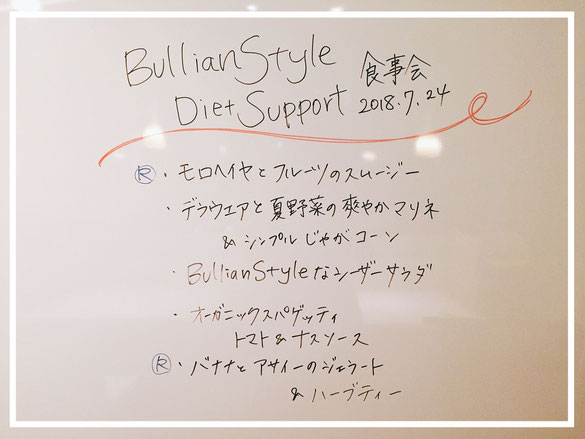 BullianStyle 食事会
Diet Support 2018.7.24
Ⓡ・モロヘイヤとフルーツのスムージー
・デラウエアと夏野菜の爽やかマリネ
& シンプルじゃがコーン
・BullianStyleなシーザーサラダ
・オーガニックスパゲッティ
トマト&ナスソース
Ⓡ・バナナとアサイーのジェラート
& ハーブティー